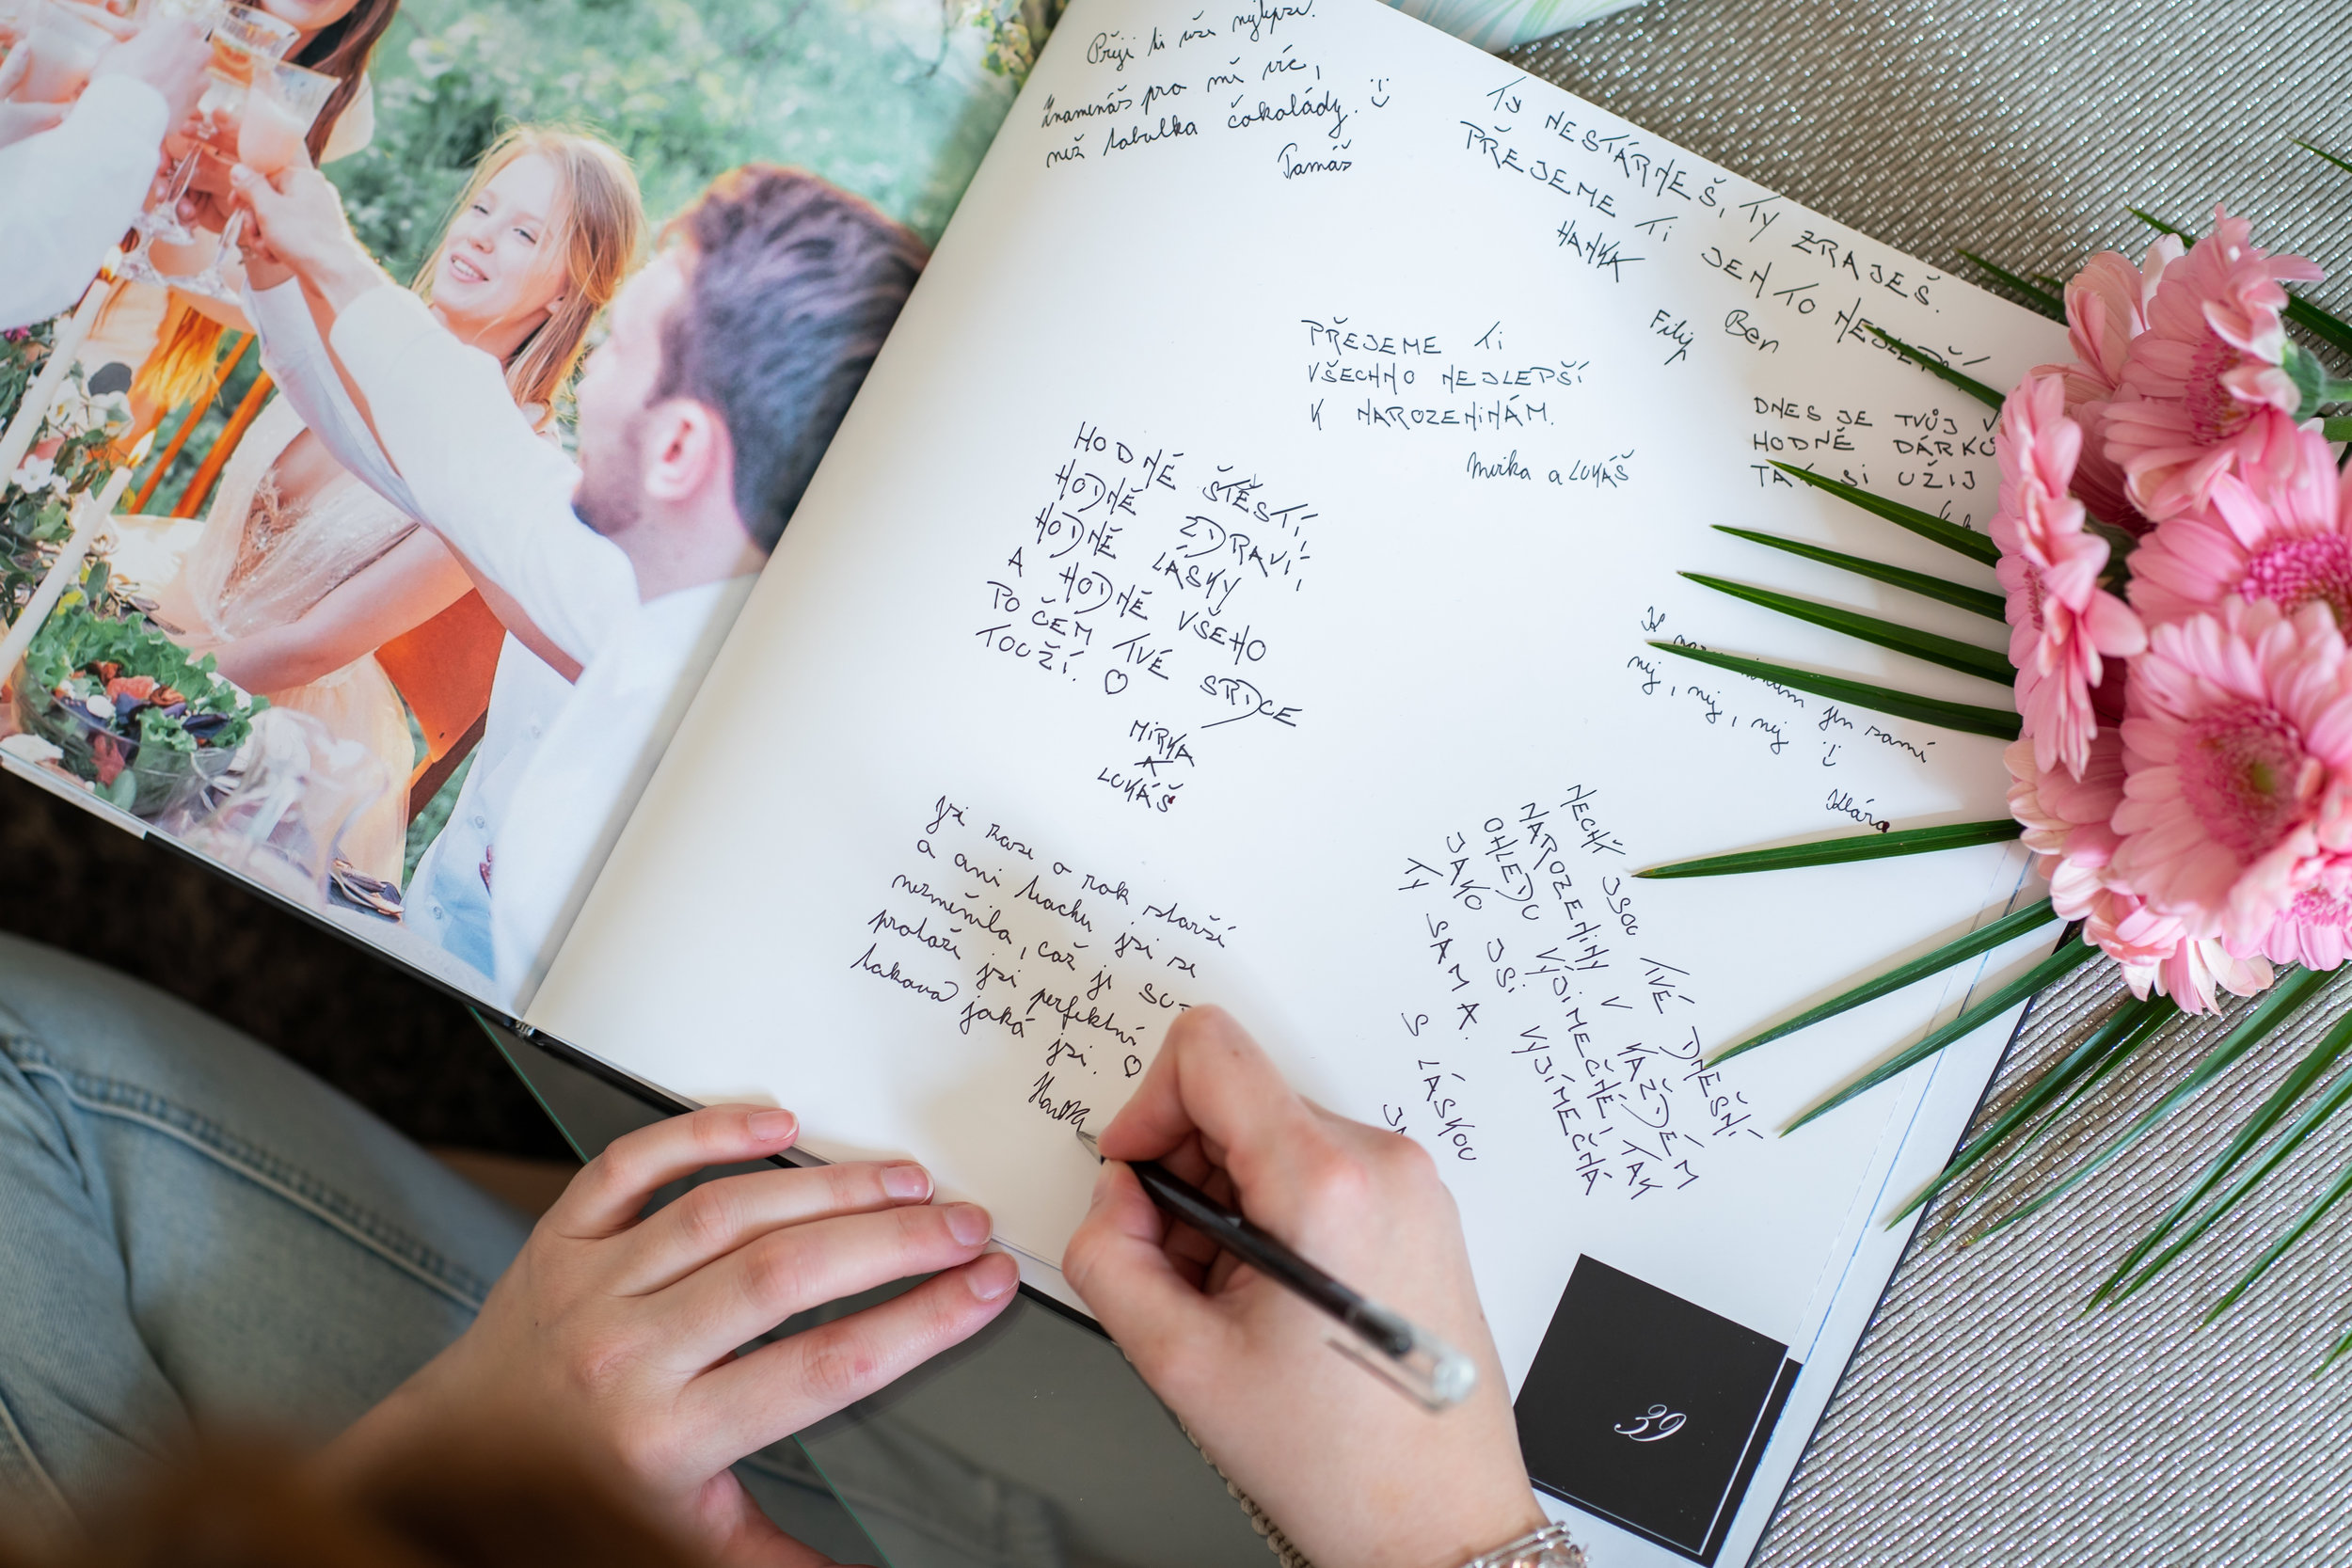 Přeji ti vše nejlepší.
Znamenáš pro mě víc,
než tabulka čokolády. :)
Tomáš
Ty NESTÁRNEŠ, TY ZRAJEŠ.
PŘEJEME Ti JEN TO NEJLEPŠÍ
HANKA
Filip
Ben
PŘEJEME Ti
VŠECHNO NEJLEPŠÍ
K NAROZENINÁM.
Mirka a LUKÁŠ
DNES JE TVŮJ
HODNĚ DÁRKŮ
TAK SI UŽIJ
HODNĚ ŠTĚSTÍ,
HODNĚ ZDRAVÍ,
HODNĚ LÁSKY
A HODNĚ VŠEHO
PO ČEM TVÉ SRDCE
TOUŽÍ. ♡
MIRKA
A
LUKÁŠ
K jen samé
nej, nej, nej :)
Klára
Jsi zase o rok starší
a ani trochu jsi se
nezměnila, což je su-
protože jsi perfektní
taková jaká jsi. ♡
NECHŤ JSOU TVÉ DNEŠNÍ
NAROZENINY V KAŽDÉM
OHLEDU VÝJIMEČNÉ, TAK
JAKO JSI VÝJIMEČNÁ
TY SAMA.
S LÁSKOU
39